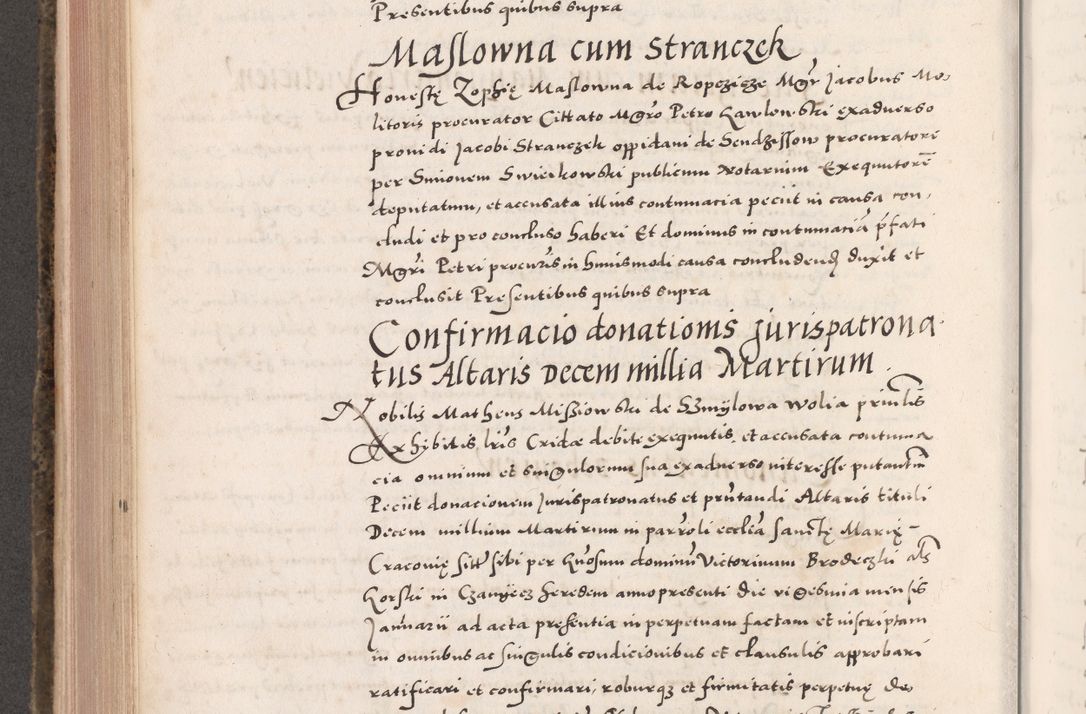 Presentibus quibus supra
Maslowna cum Stranczek
Honestę Zophię Maslowna de Ropczicze Mgr̃ Jacobus Mo-
litoris procurator Cittato Mgr̃o Petro Gawlowski exadverso
providi Jacobi Stranczek oppidani de Sendzissow procuratore
per Simonem Swieikowski publicum Notarium Exequutorẽ
deputatum, et accusata illius contumacia peciit in causa con-
cludi et pro concluso haberi Et dominus in contumaciã p̃fati
Mgr̃i Petri procur̃is in huiusmodi causa concludend duxit et
conclusit Presentibus quibus supra
Confirmacio donationis Jurispatrona-
tus Altaris Decem millia Martirum.
Nobilis Matheus Missiowski de Szmylowa Wolia prin̄lis
Exhibitis lr̃is Cridæ debite exequutis, et accusata contuma
cia omnium et singulorum sua exadverso interesse putantiũ
Peciit donacionem Jurispatronatus et pñtandi Altaris tituli
Decem millium Martirum in parr̃oli eccl̃ia Sanctę Marię
Cracovię sitt̃ sibi per Gñosum dominũ Victorinum Brodeczki al̃s
Gorski in Czanyecz heredem anno presenti die vigesima mensis
Januarii ad acta presentia in perpetuam factam et inscriptam
in omnibus ac singulis condicionibus et clausulis approbari
ratificari et confirmari, roburq₃ et firmitatis perpetuę de-